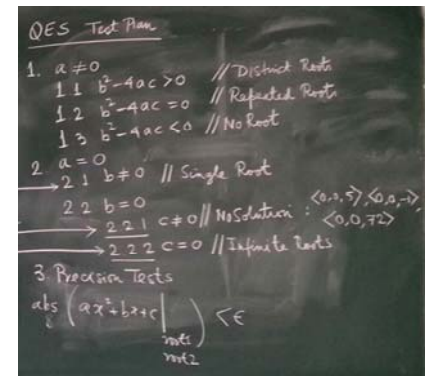 QES Test Plan
1. a≠0
1 1 b²-4ac>0 // Distinct Roots
1 2 b²-4ac=0 // Repeated Roots
1 3 b²-4ac<0 // No Root
2. a=0
2 1 b≠0 // Single Root
2 2 b=0
2 2 1 c≠0 // No Solution : <0,0,5>, <0,0,-1>, <0,0,72>
2 2 2 c=0 // Infinite Roots
3. Precision Tests
abs ( ax²+bx+c | ) < ϵ
root1
root2